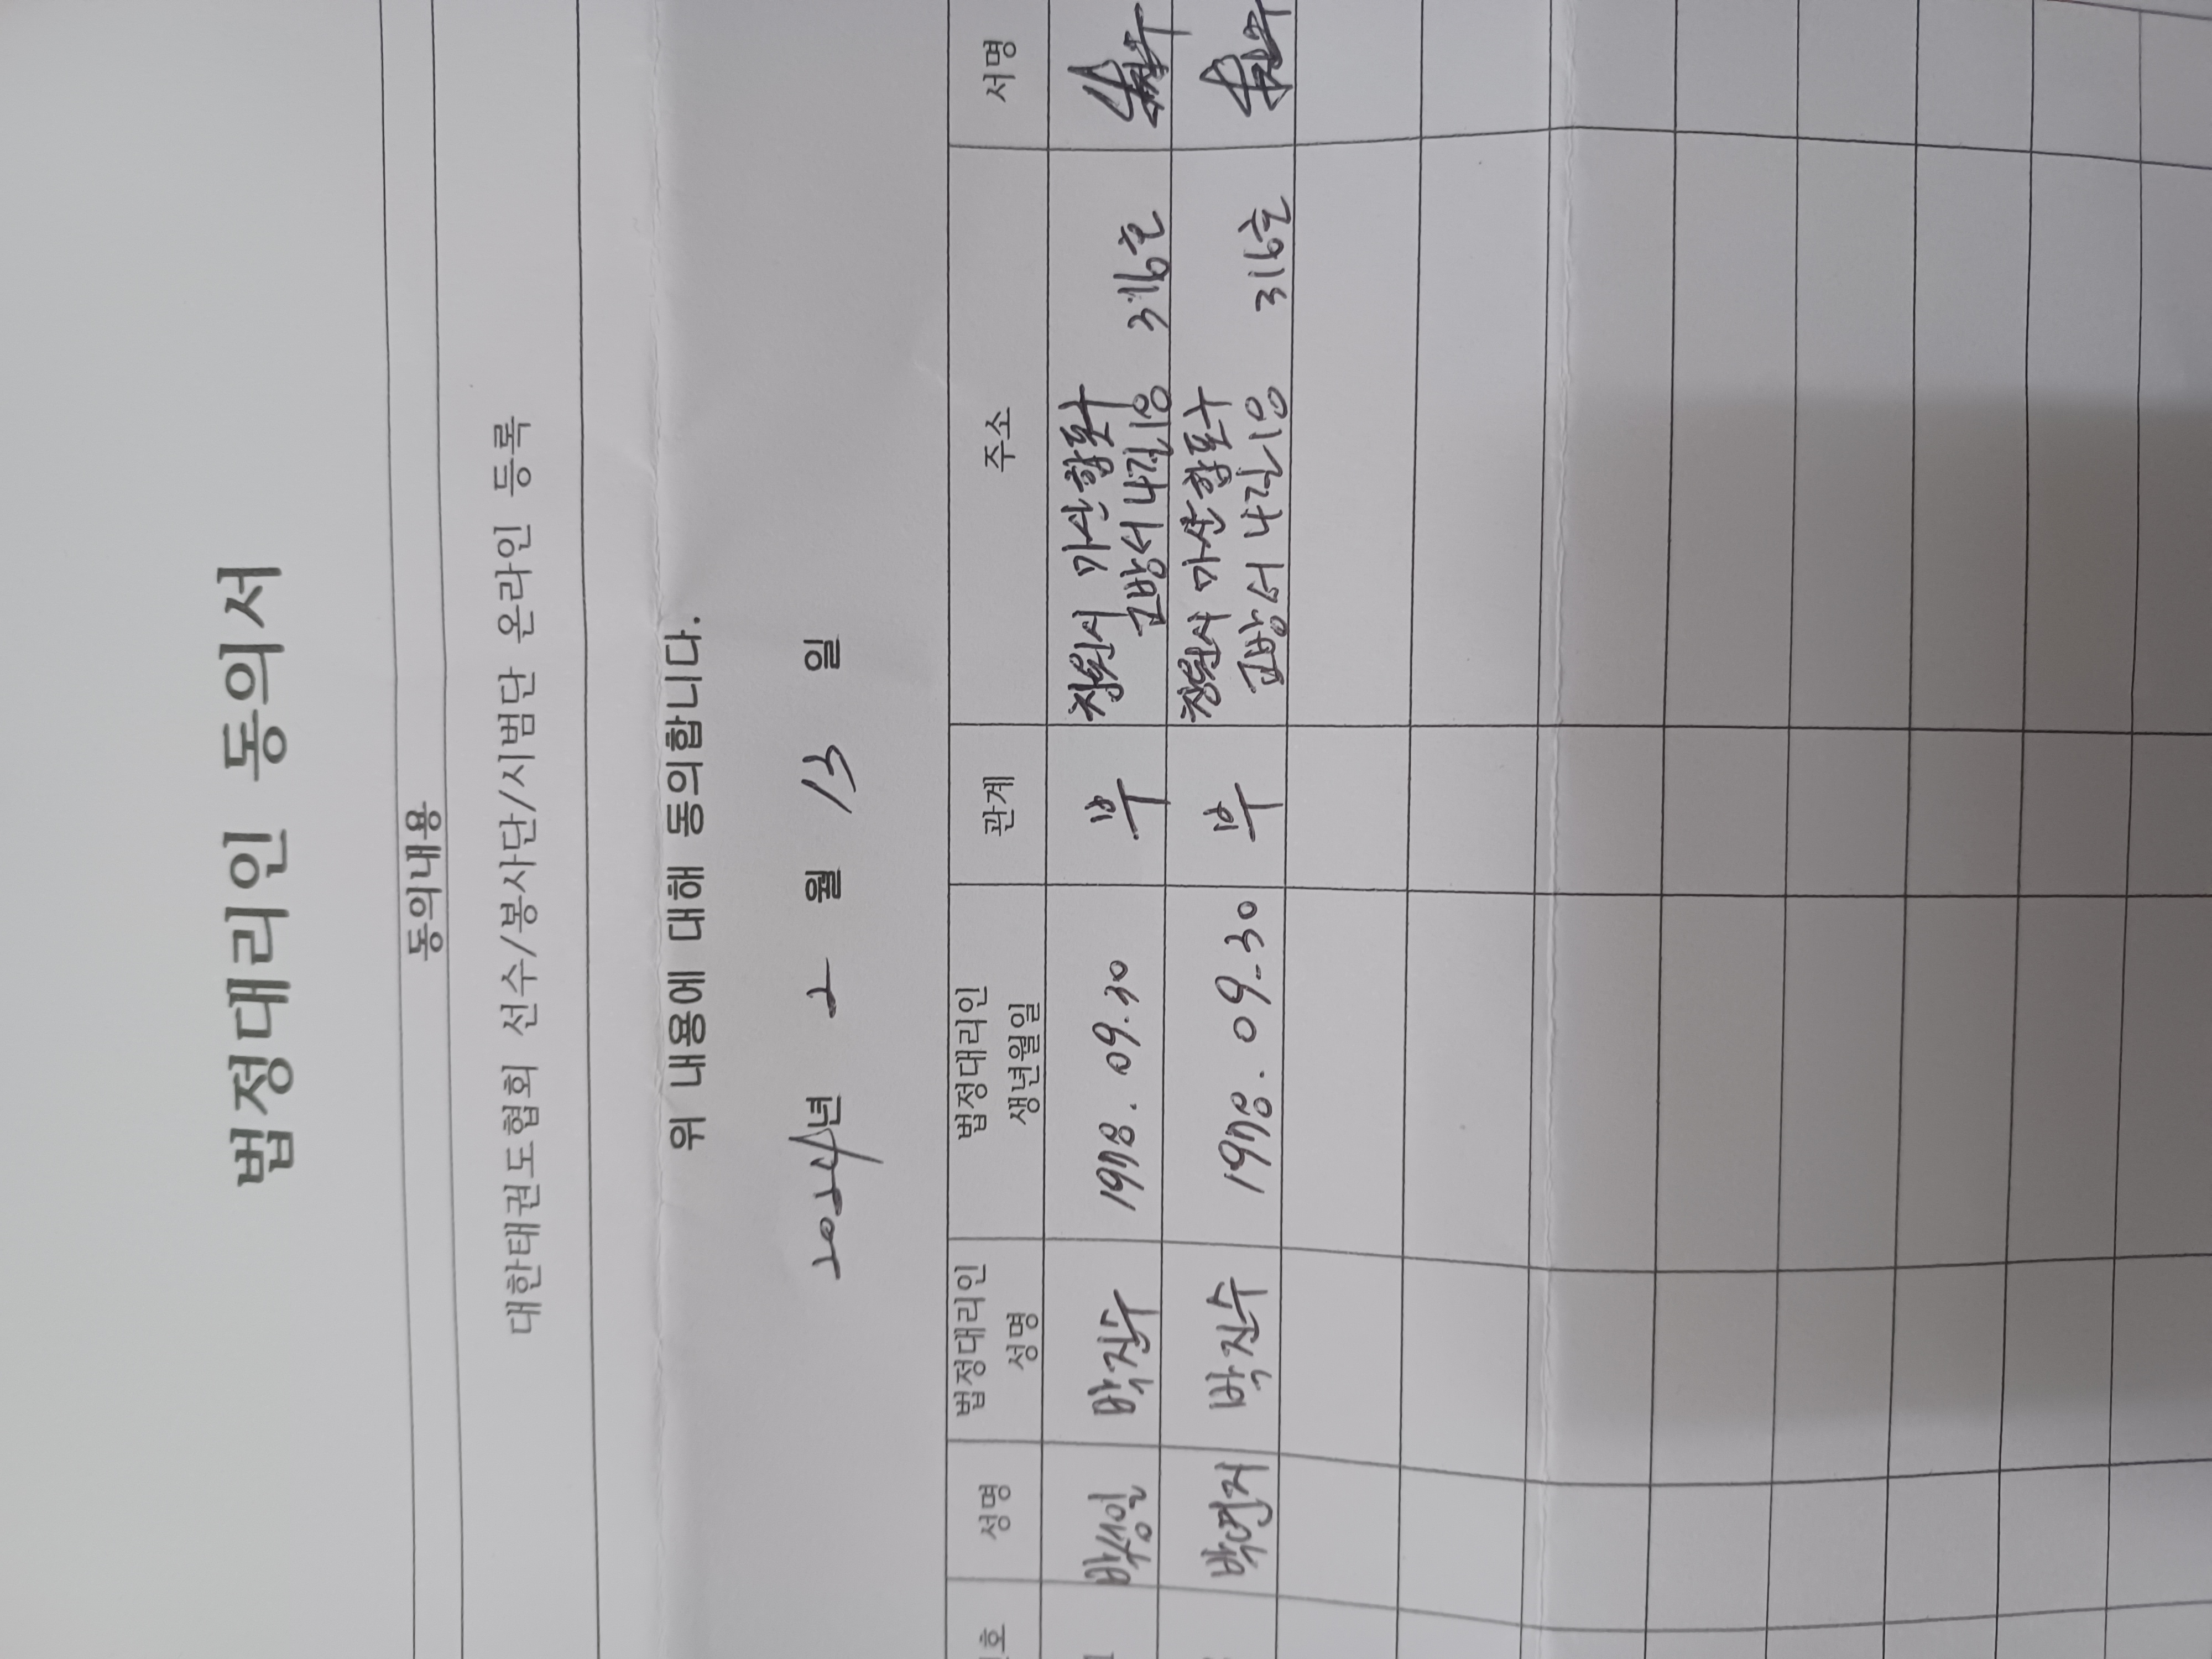 법정대리인 동의서
동의내용
대한태권도협회 선수/봉사단/시범단 온라인 등록
위 내용에 대해 동의합니다.
2024년 2 월 13 일
호 성명 법정대리인 성명 법정대리인 생년월일 관계 주소 서명
1 박성일 박진수 1978. 09. 30 부 창원시 마산합포구 교방서 4길 10 316호
박진수 1978. 09-30 부 창원시 마산합포구 교방서 4길 10 316호